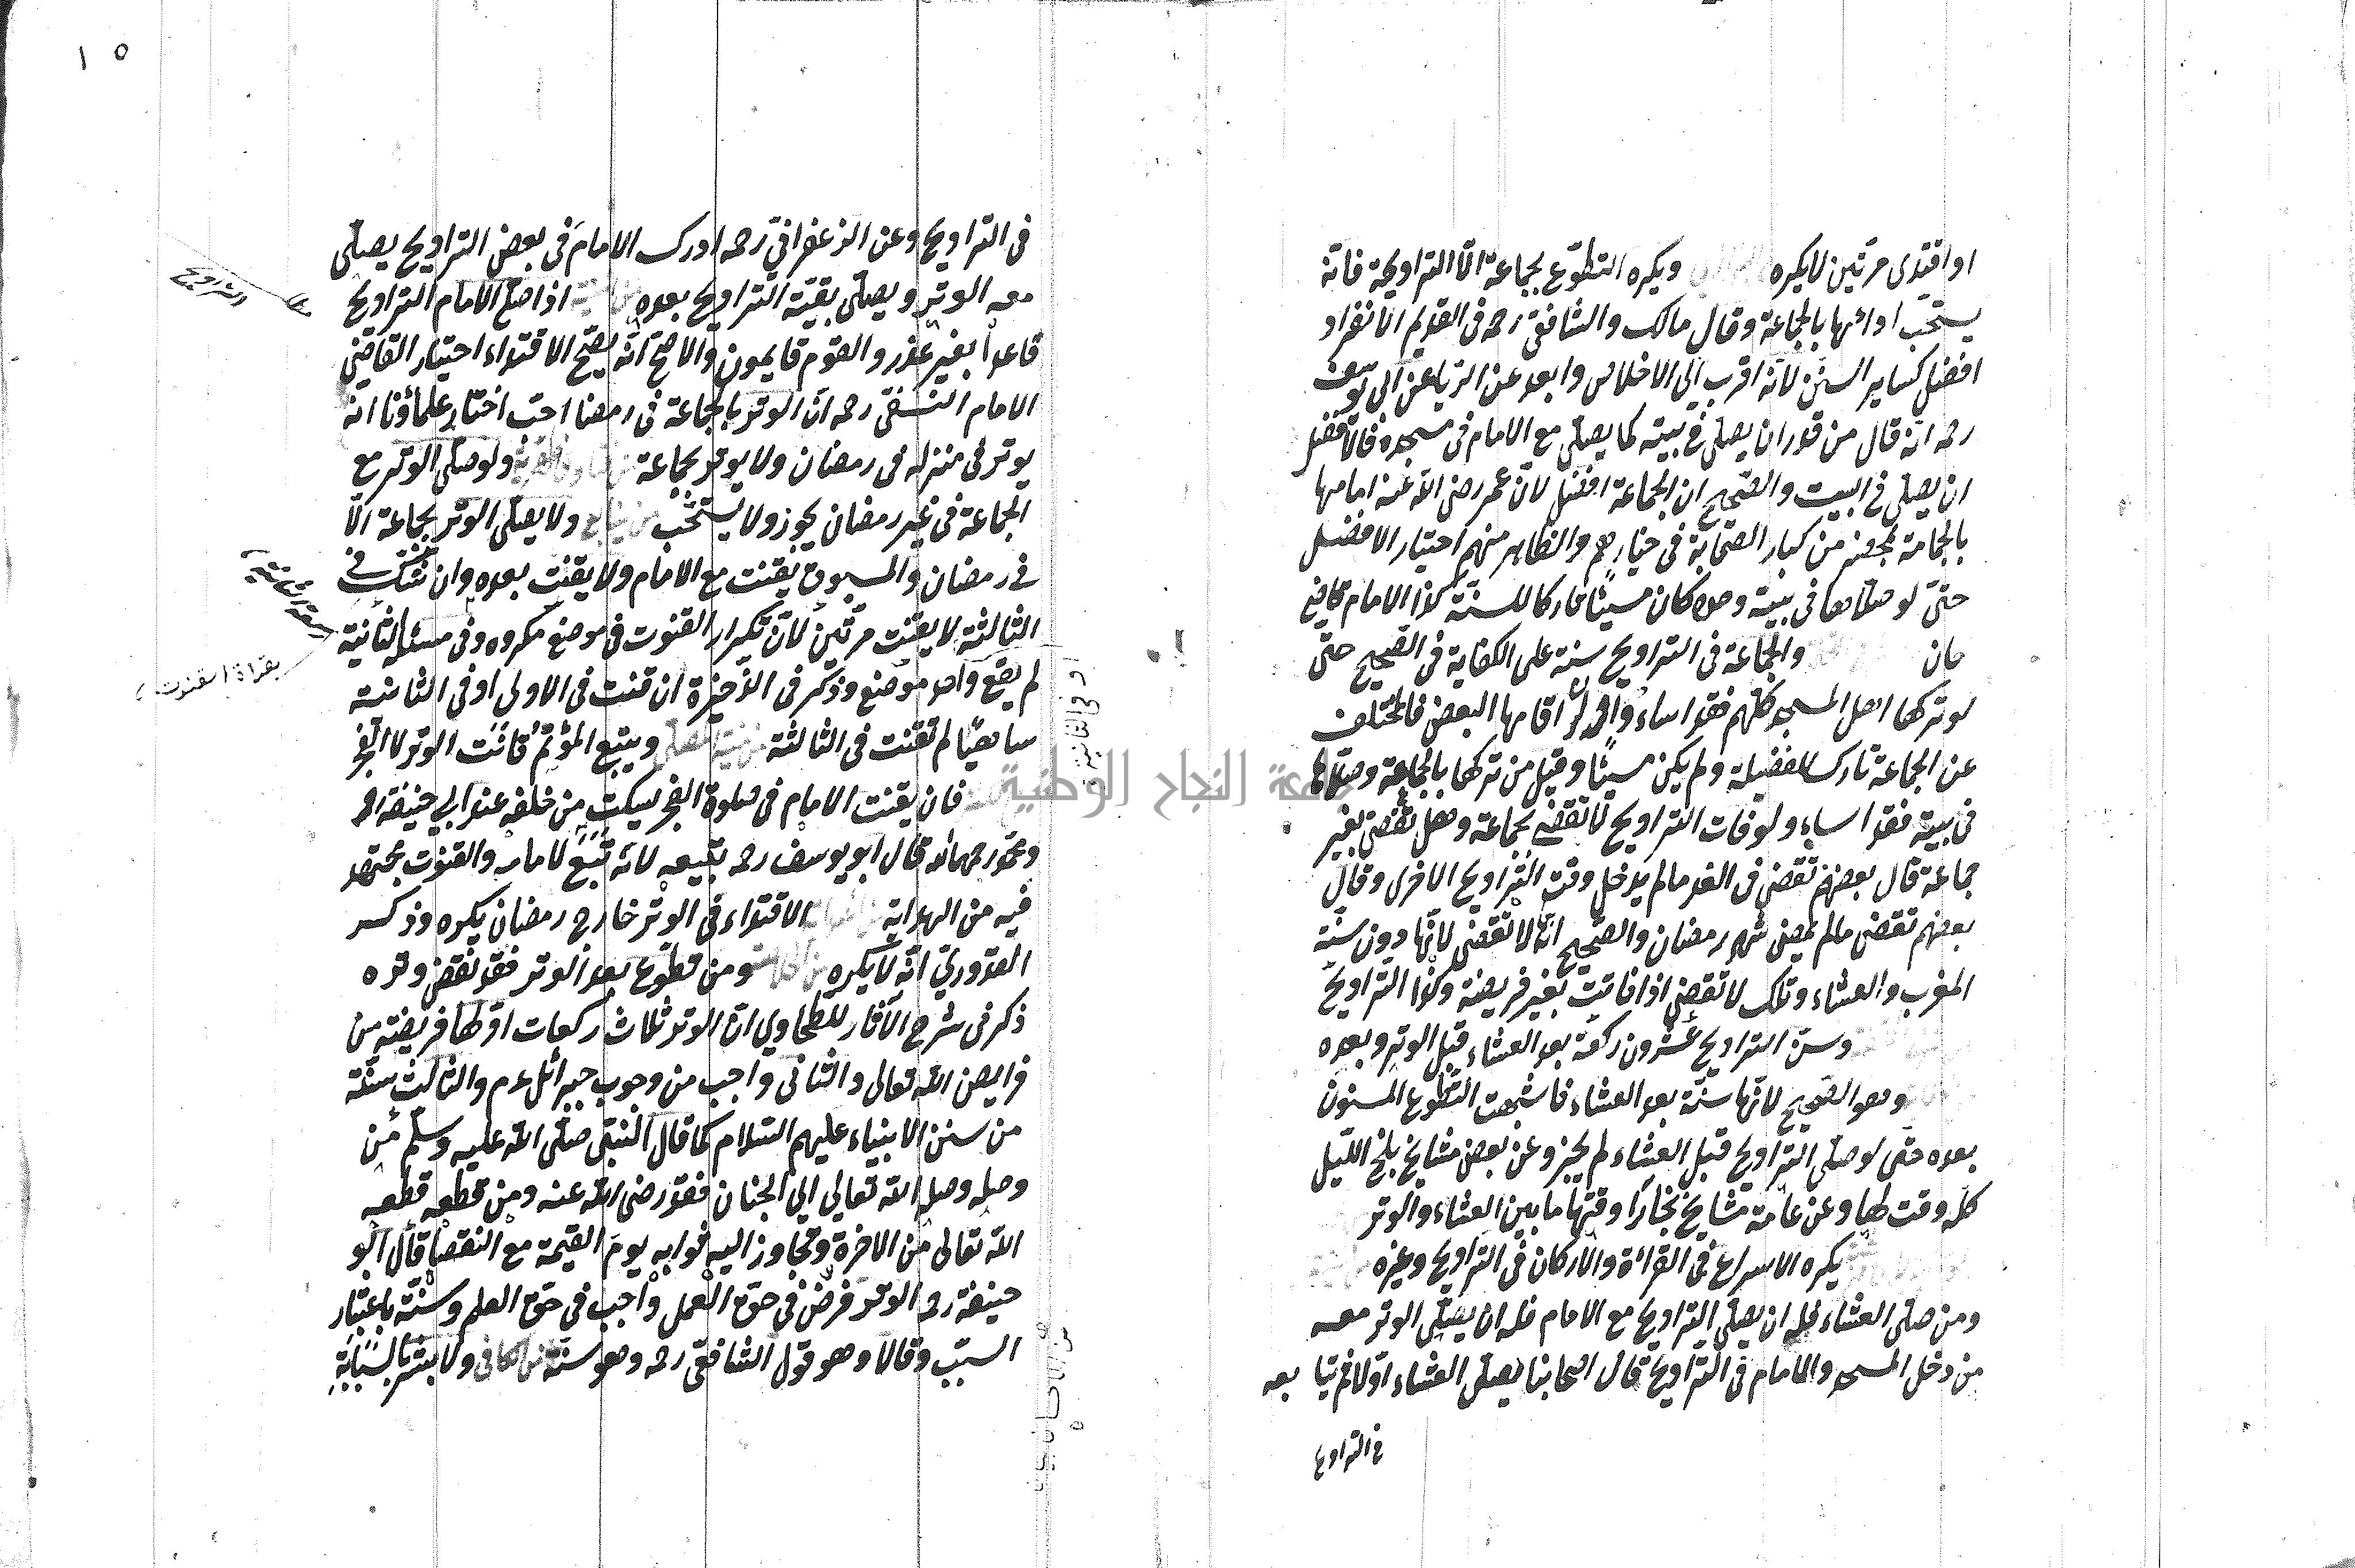 او اقتدى مرتين لا يكره ويكره التطوّع بجماعة الّا التراويحة فانه
يستحبّ ادائها بالجماعة وقال مالك والشافعيّ رحه فى القديم الانفراد
افضل كساير السنن لانه اقرب الى الاخلاص وابعد عن الريا عن ابى يوسف
رحه انّه قال من قدر ان يصلى فى بيته كما يصلّى مع الامام فى مسجده فالافضل
ان يصلى فى البيت والصّحيح ان الجماعة افضل لانّ عمر رضى اللّه عنه اقامها
بالجماعة بمحضر من كبار الصّحابة فى خيارهم والظاهر منهم اختيار الافضل
حتّى لو صلّاها فى بيته وحده كان مسيئًا تاركا للسنّة كذا الامام قاضى
خان والجماعة فى التراويح سنة على الكفاية فى الصّحيح حتّى
لو تركها اهل المسجد كلّهم فقد اساء وا ولو اقامها البعض فالمتخلف
عن الجماعة تارك للفضيلة ولم يكن مسيئًا وقيل من تركها بالجماعة وصلّاها
فى بيته فقد اساء ولو فات التراويح لا تقضى بجماعة وهل تقضى بغير
جماعة قال بعضهم تقضى فى الغد مالم يدخل وقت التّراويح الاخرى وقال
بعضهم تقضى مالم يمضى شهر رمضان والصّحيح انّها لا تقضى لانّها دون سنّة
المغرب والعشاء وتلك لا تقضى اذا فاتت بغير فريضة وكذا التّراويح
وسنّ التراويح عشرون ركعة بعد العشاء قبل الوتر وبعده
وهو الصّحيح لانّها سنّة بعد العشاء فاشبهت التّطوع المسنون
بعده حتّى لو صلّى التراويح قبل العشاء لم يجز وعن بعض مشايخ بلخ اللّيل
كلّه وقت لها وعن عامّة مشايخ بخارا وقتها ما بين العشاء والوتر
يكره الاسراع فى القرائة والاركان فى التراويح وغيره
ومن صلّى العشاء فله ان يصلّى التراويح مع الامام فله ان يصلّى الوتر معه
من دخل المسجد والامام فى التّراويح قال اصحابنا يصلّى العشاء اوّلا ثم يتا بعه
فى التراويح
١٥
فى التّراويح وعن الزعفرانيّ رحه ادرك الامام فى بعض التراويح يصلّى
معه الوتر ويصلّى بقيّة التراويح بعده اذا صلّى الامام التراويح
قاعدًا بغير عذر والقوم قايمون والاصحّ انّه يصّح الاقتداء اختيار القاضى
الامام النسفىّ رحه انّ الوتر بالجماعة فى رمضا احبّ اختار علماؤنا انه
يوتر فى منزله فى رمضان ولا يوتر بجماعة ولو صلّى الوتر مع
الجماعة فى غير رمضان يجوز ولا يستحّب ولا يصلّى الوتر بجماعة الّا
فى رمضان والمسبوق يقنت مع الامام ولا يقنت بعده وان شكّ فى
الثالثة لا يقنت مرتّين لانّ تكرار القنوت فى موضع مكروه وفى مسئلة الثانية
لم يقع واحد موضع وذكر فى الذّخيرة ان قنت فى الاولى او فى الثانية
ساهيًا لم تقنت فى الثالثة ويتبع المؤتمّ قانت الوتر لا الفجر
فان يقنت الامام فى صلوة الفجر يسكت من خلفه عند ابى حنيفة
ومحمّد رحمهما الله قال ابو يوسف رحه يتبعه لانّه تبع لامامه والقنوت مجتهد
فيه من الهداية الاقتداء فى الوتر خارج رمضان يكره وذكر
القدوريّ انّه لا يكره ومن تطوّع بعد الوتر فقد نقض وتره
ذكر فى شرح الآثار للطحاوى انّ الوتر ثلاث ركعات اوّلها فريضة من
فرايض اللّه تعالى والثانى واجب من وجوب جبرائل ءم والثالث سنّة
من سنن الانبياء عليهم السّلام كما قال النّبىّ صلّى اللّه عليه وسلّم من
وصله وصله اللّه تعالى الى الجنان فقد رضى اللّه عنه ومن قطعه قطعه
اللّه تعالى من الاخرة وتجاوز اليه ثوابه يوم القيمة مع النقصا قال ابو
حنيفة رحه الوتر فرض فى حقّ العمل واجب فى حقّ العلم وسنّة باعتبار
السبّب وقالا وهو قول الشافعّى رحه وهو سنّة من الكافى ولا يشير بالسّبّابة
التراويح
الركعة الثانية
بقراءة القنوت
او فى الثانية